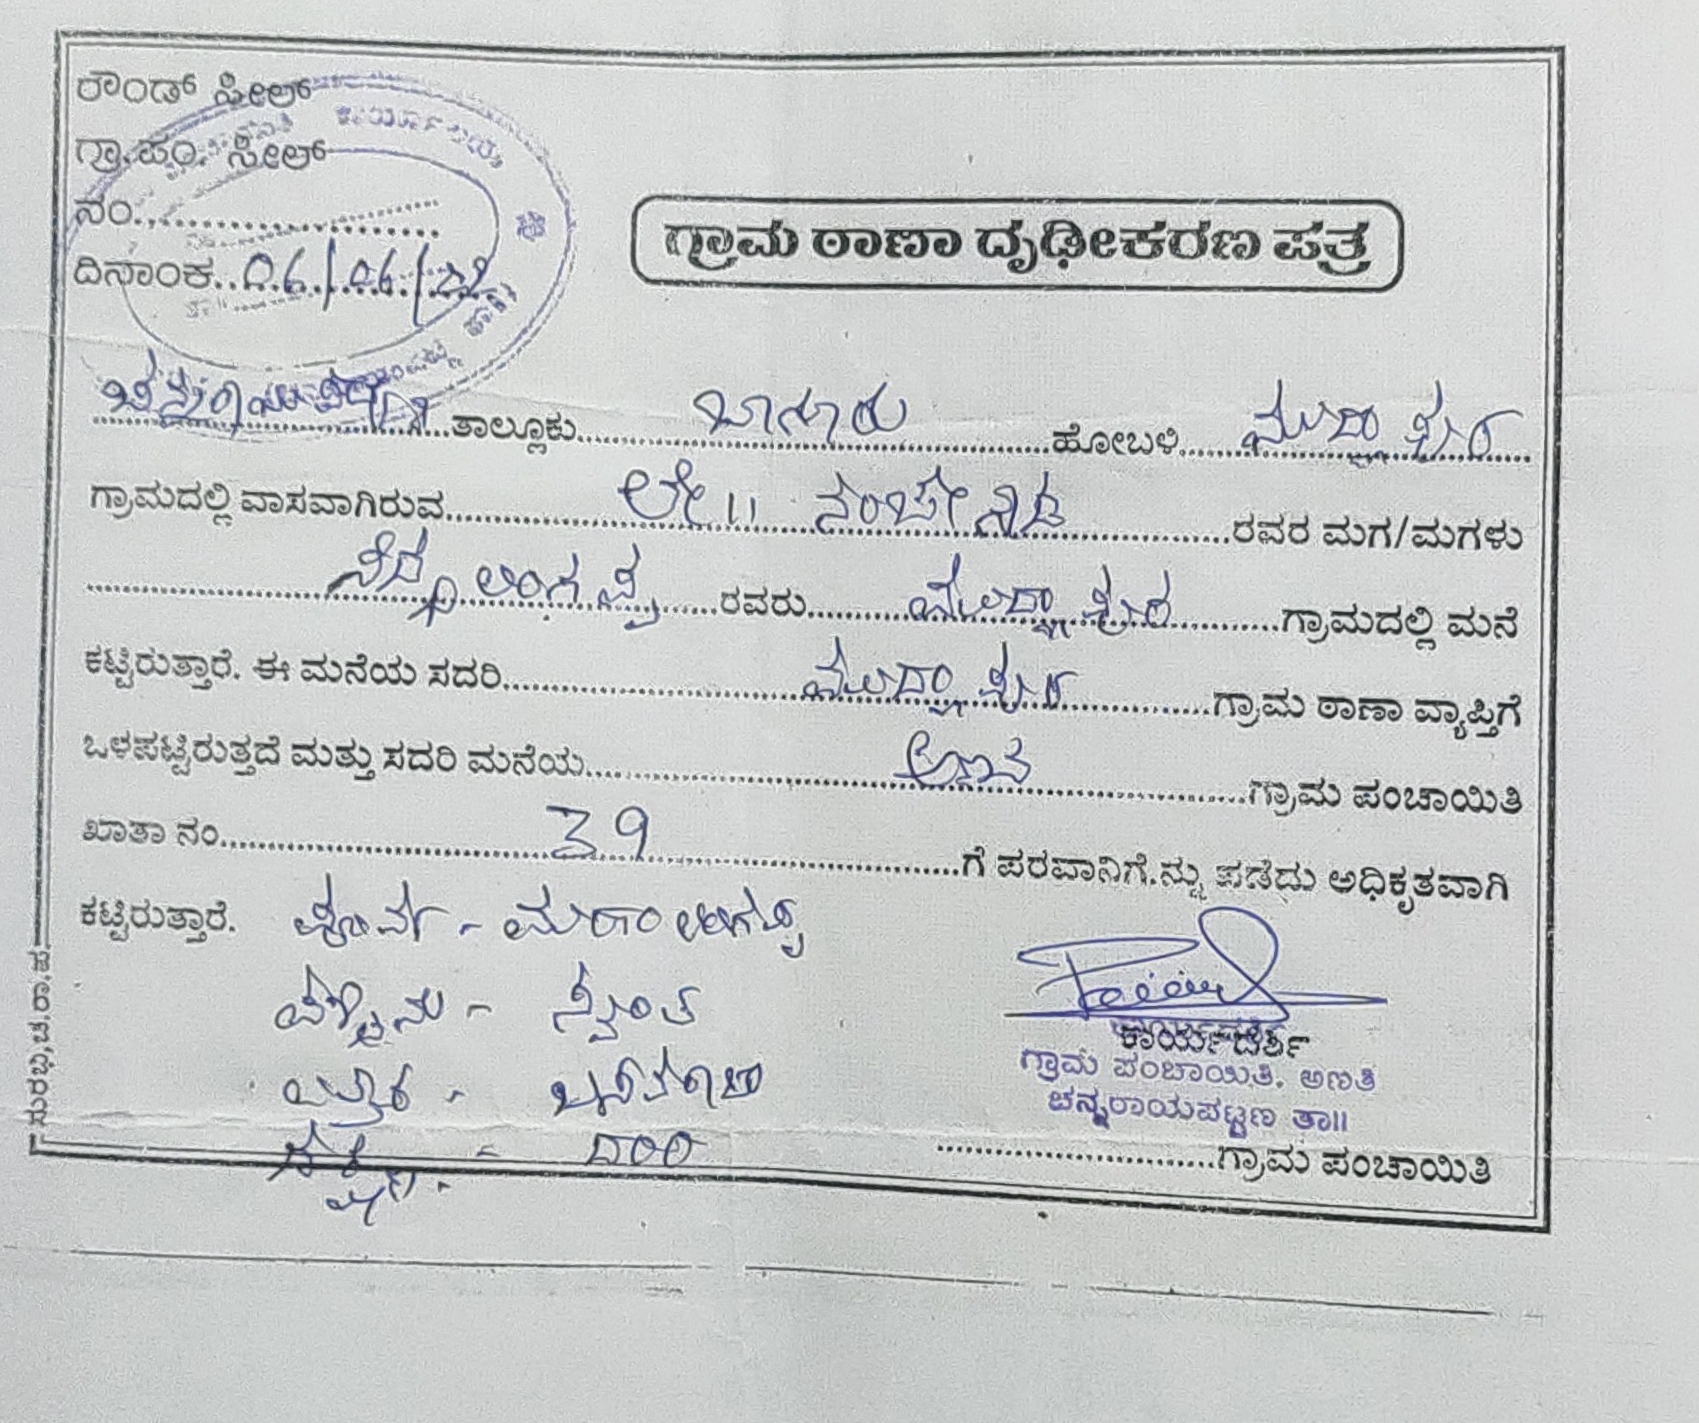 ರೌಂಡ್ ಸೀಲ್
ಗ್ರಾ.ಪಂ. ಸೀಲ್
ನಂ..........................
ದಿನಾಂಕ..06/06/22
ಗ್ರಾಮ ಠಾಣಾ ದೃಢೀಕರಣ ಪತ್ರ
ಚನ್ನರಾಯಪಟ್ಟಣ ತಾಲ್ಲೂಕು ಬಾಗೂರು ಹೋಬಳಿ ಮುದ್ದಾಪುರ
ಗ್ರಾಮದಲ್ಲಿ ವಾಸವಾಗಿರುವ ಲೇ॥ ನಂಜೇಗೌಡ ರವರ ಮಗ/ಮಗಳು
ನಿದ್ದಲಿಂಗಪ್ಪ ರವರು ಮುದ್ದಾಪುರ ಗ್ರಾಮದಲ್ಲಿ ಮನೆ
ಕಟ್ಟಿರುತ್ತಾರೆ. ಈ ಮನೆಯ ಸದರಿ ಮುದ್ದಾಪುರ ಗ್ರಾಮ ಠಾಣಾ ವ್ಯಾಪ್ತಿಗೆ
ಒಳಪಟ್ಟಿರುತ್ತದೆ ಮತ್ತು ಸದರಿ ಮನೆಯ ಅಣತಿ ಗ್ರಾಮ ಪಂಚಾಯಿತಿ
ಖಾತಾ ನಂ. 39 ಗೆ ಪರವಾನಿಗೆ.ನ್ನು ಪಡೆದು ಅಧಿಕೃತವಾಗಿ
ಕಟ್ಟಿರುತ್ತಾರೆ. ಪೂರ್ವ - ಮಠಾಲಿಂಗಪ್ಪ
ಪಶ್ಚಿಮ - ಸ್ವಂತ
ಉತ್ತರ -
ದಕ್ಷಿಣ - ದಾರಿ
ಕಾರ್ಯದರ್ಶಿ
ಗ್ರಾಮ ಪಂಚಾಯಿತಿ. ಅಣತಿ
ಚನ್ನರಾಯಪಟ್ಟಣ ತಾ॥
..........................ಗ್ರಾಮ ಪಂಚಾಯಿತಿ
ಸುರಭಿ,ಚ.ರಾ.ಪ